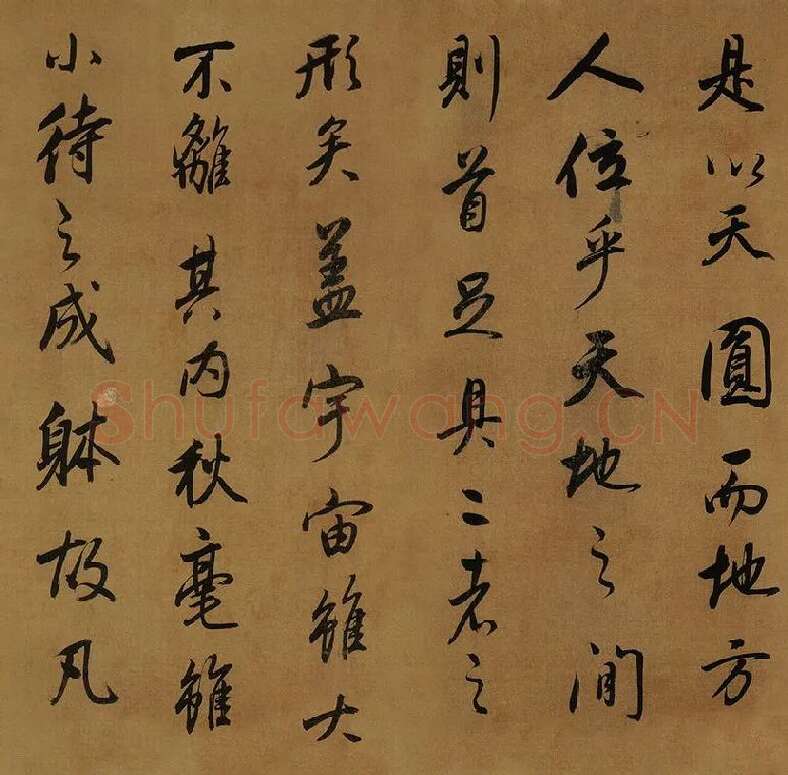 是以天圓而地方
人位乎天地之間
則首足具二者之
形矣蓋宇宙雖大
不離其内秋毫雖
小待之成躰故凡
Shufawang.CN